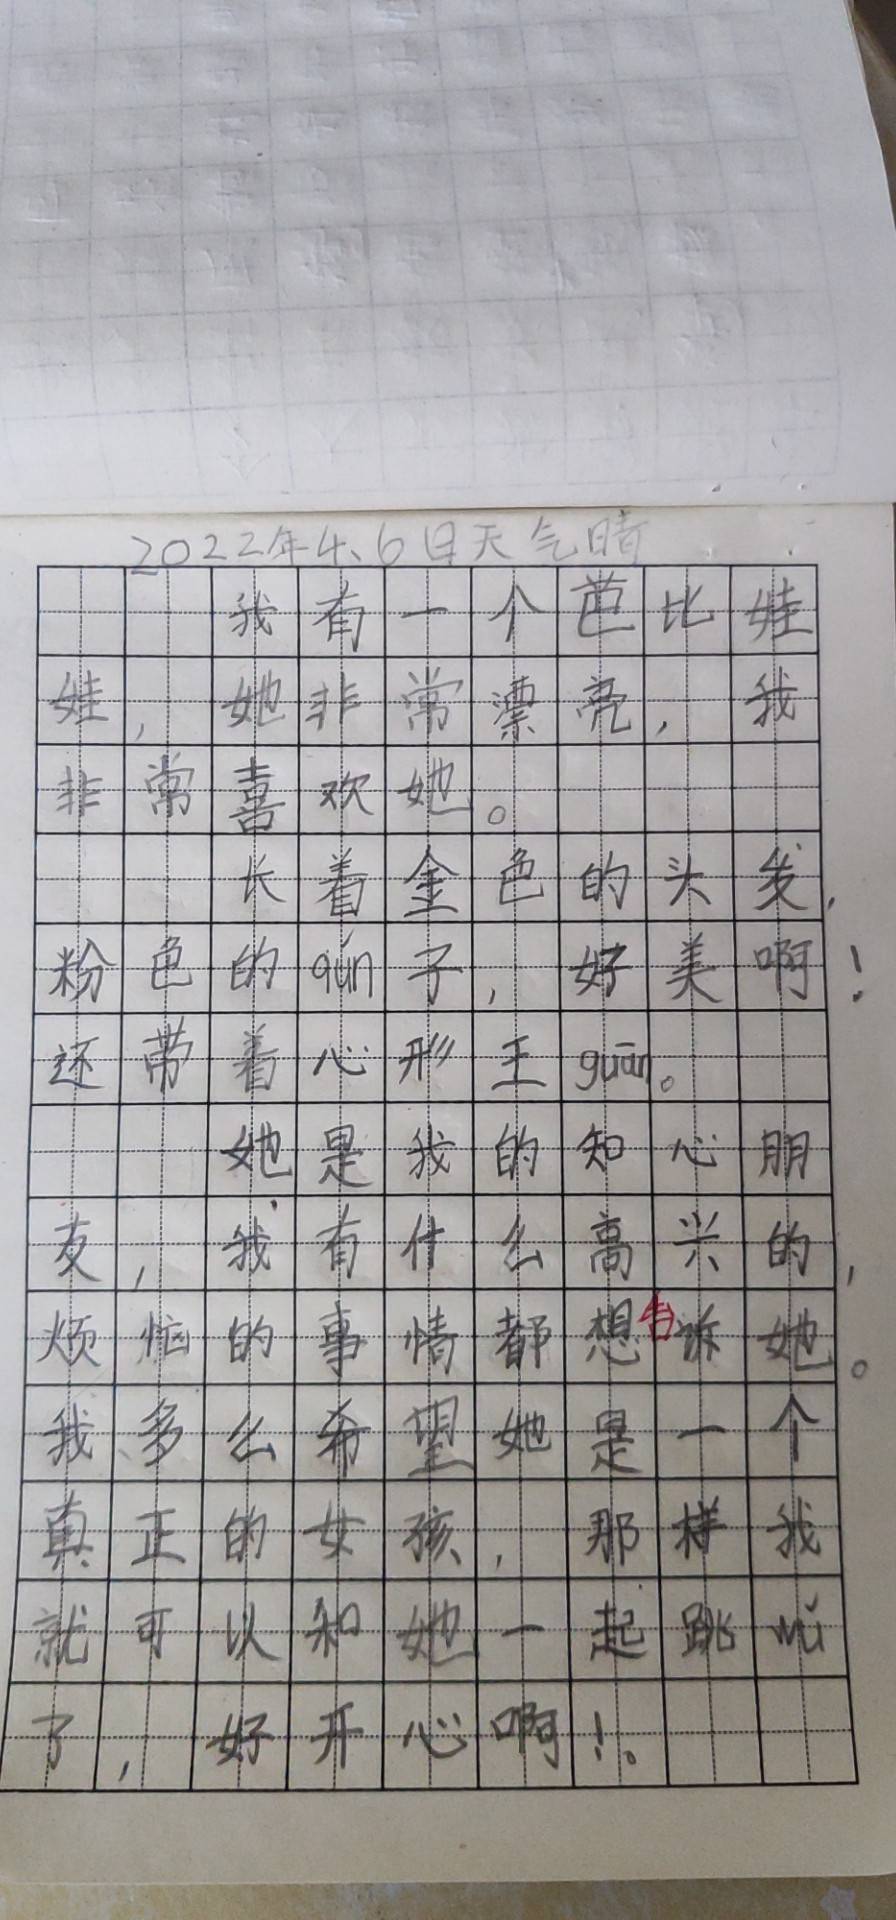 2022年4、6日天气晴
我有一个芭比娃
娃，她非常漂亮，我
非常喜欢她。
长着金色的头发，
粉色的qún子，好美啊！
还带着心形王guān。
她是我的知心朋
友，我有什么高兴的，
烦恼的事情都想告诉她。
我多么希望她是一个
真正的女孩，那样我
就可以和她一起跳wǔ
了，好开心啊！。